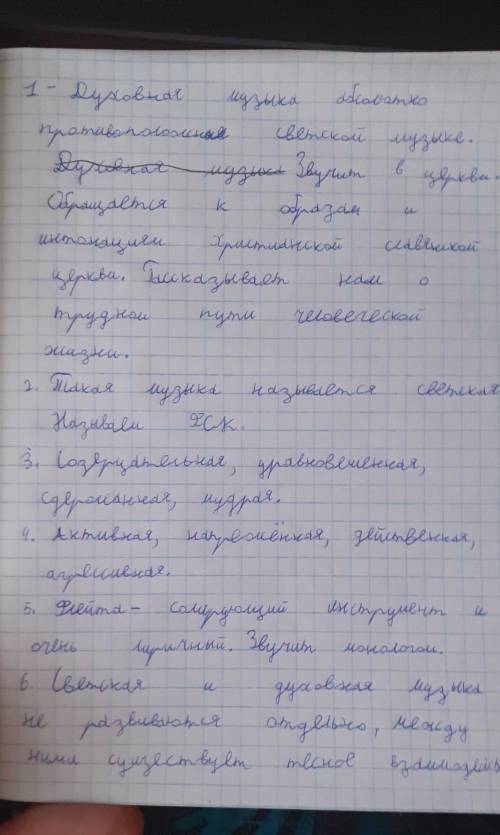 1 - Духовная музыка абсолютно
противоположна светской музыке.
Духовная музыка Звучит в церкви.
Обращается к образам и
интонациям христианской славянской
церкви. Рассказывает нам о
трудном пути человеческой
жизни.
2. Такая музыка называется светская
Называем ФСК.
3. Созерцательная, уравновешенная,
сдержанная, мудрая.
4. Активная, напряжённая, действенная,
агрессивная.
5. Флейта - солирующий инструмент и
очень лиричный. Звучит монологом.
6. Светская и духовная музыка
не развиваются отдельно, между
ними существует тесное взаимодейств